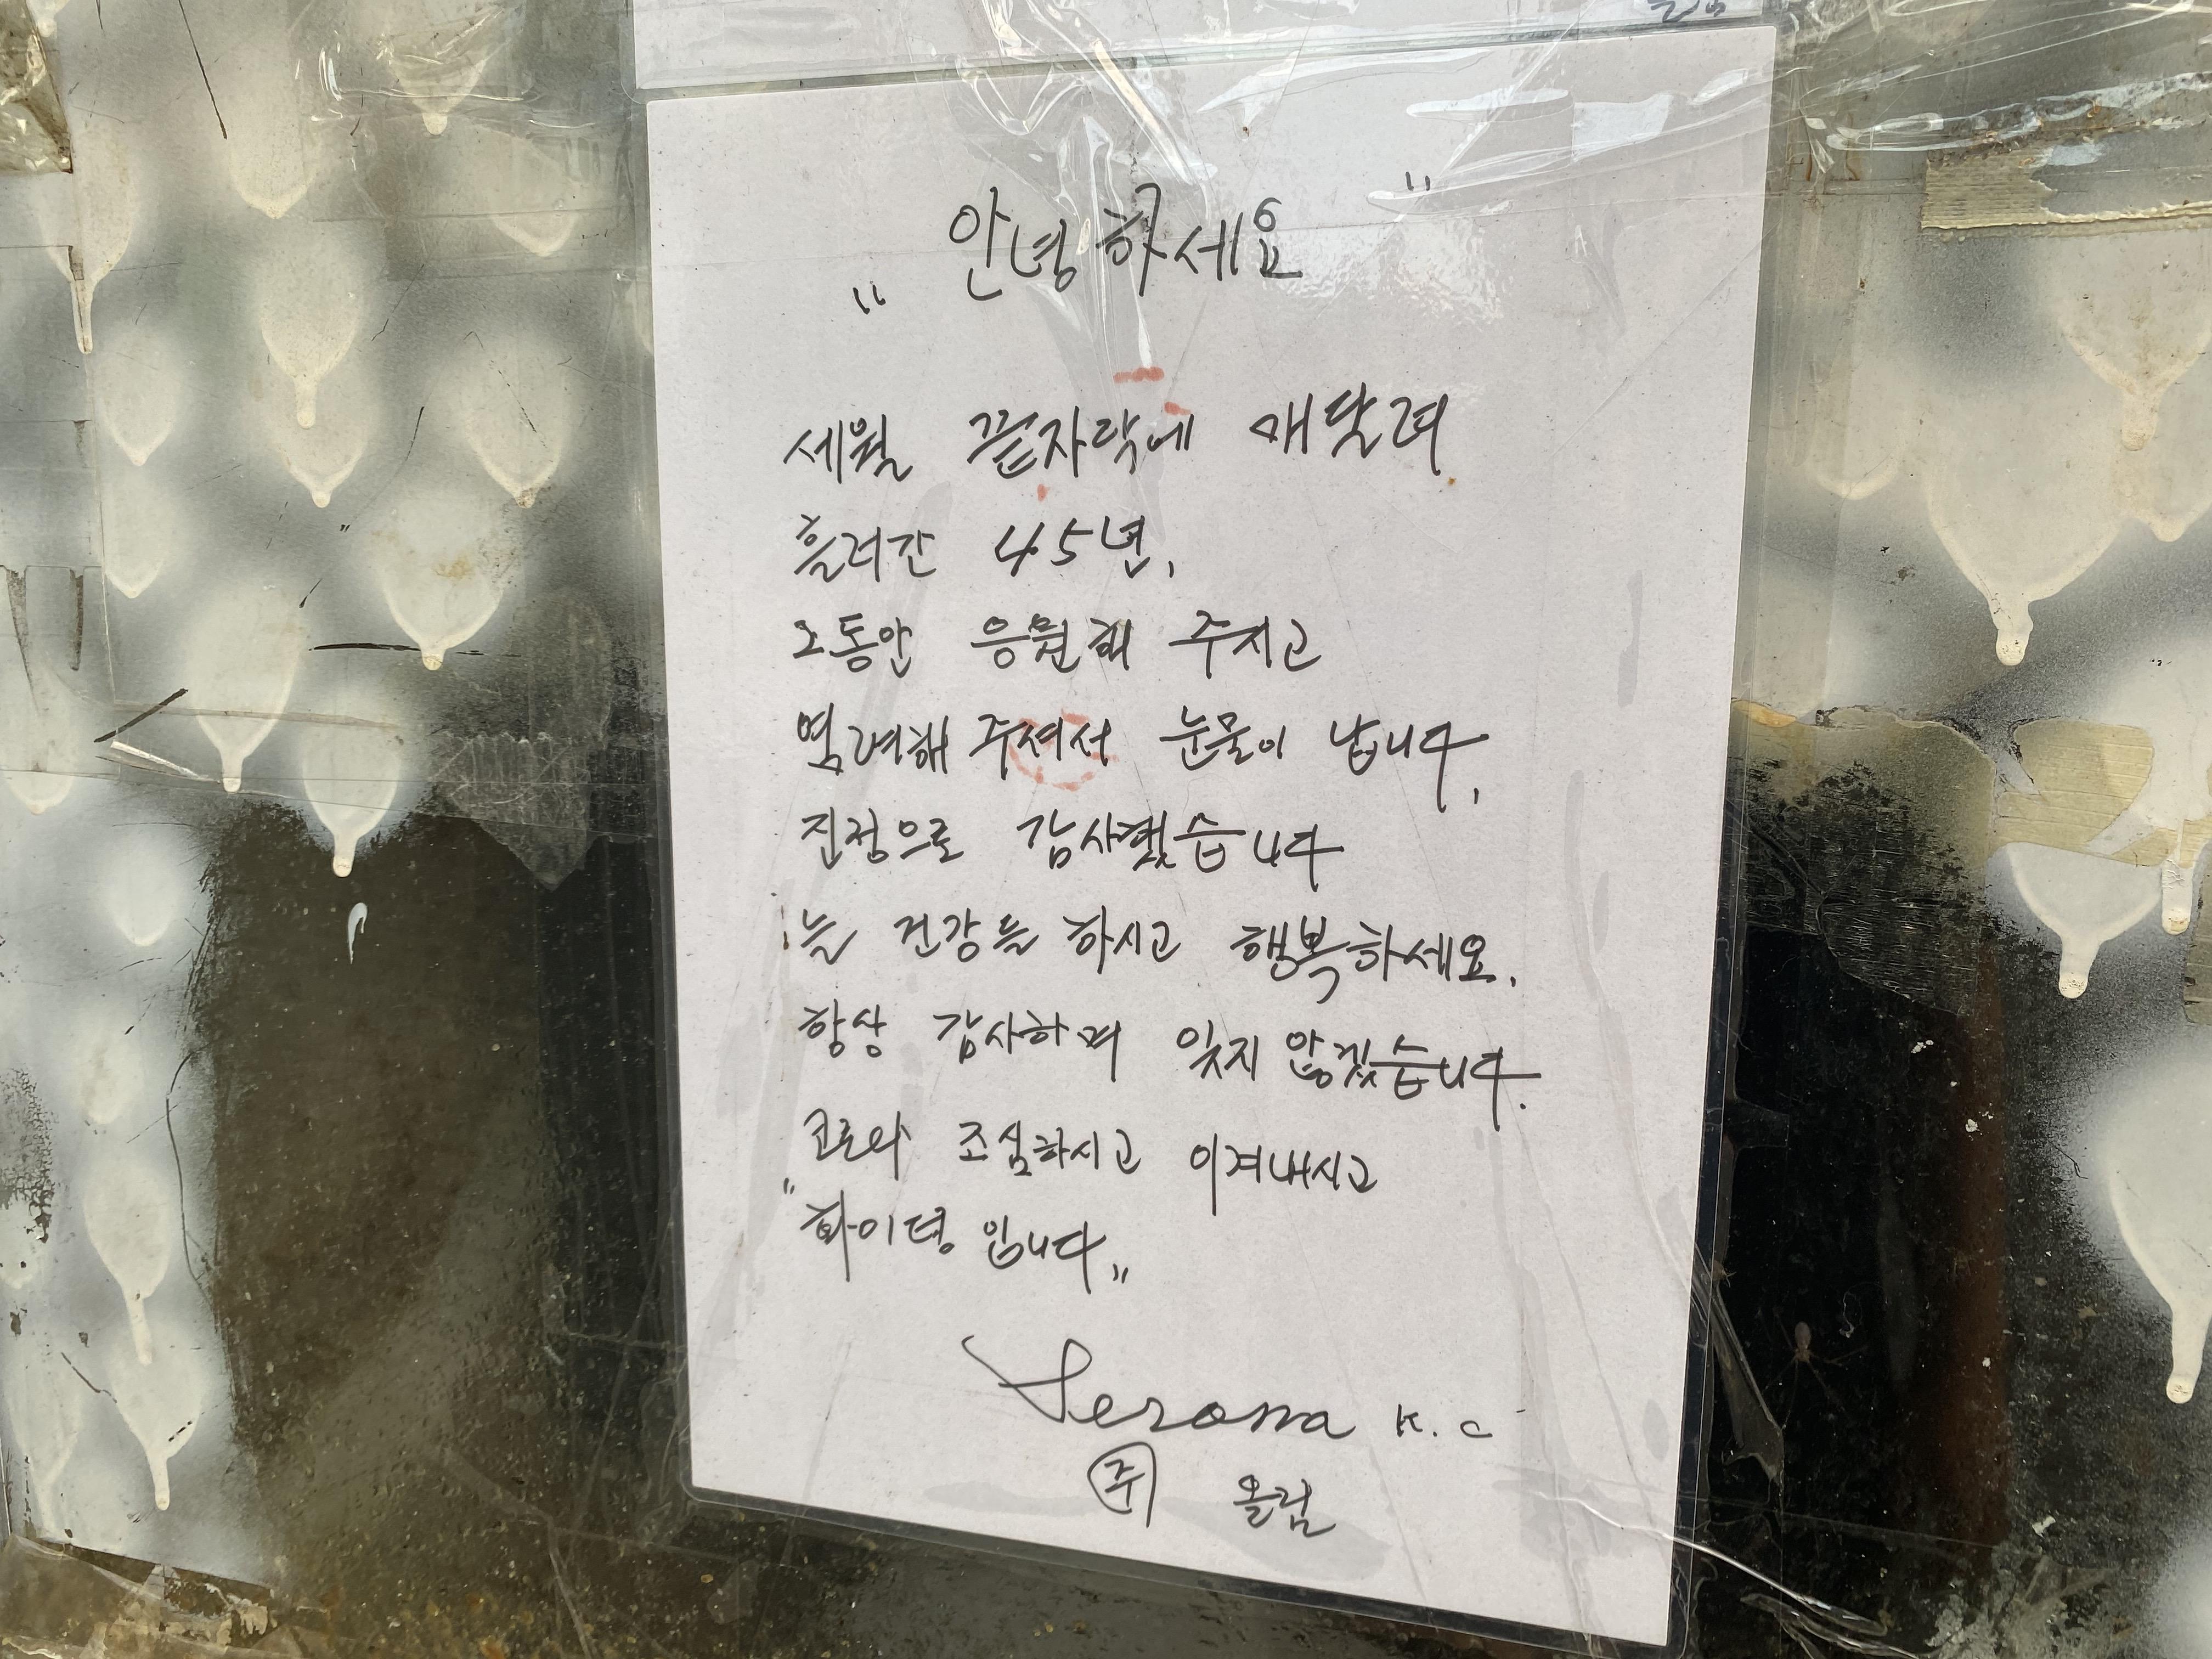 " 안녕하세요 "
세월 끝자락에 매달려
흘러간 45년,
그동안 응원해 주시고
염려해 주셔서 눈물이 납니다,
진정으로 감사했습니다
늘 건강들 하시고 행복하세요.
항상 감사하며 잊지 않겠습니다.
코로나 조심하시고 이겨내시고
"화이팅 입니다"
K. C
㈜ 올림